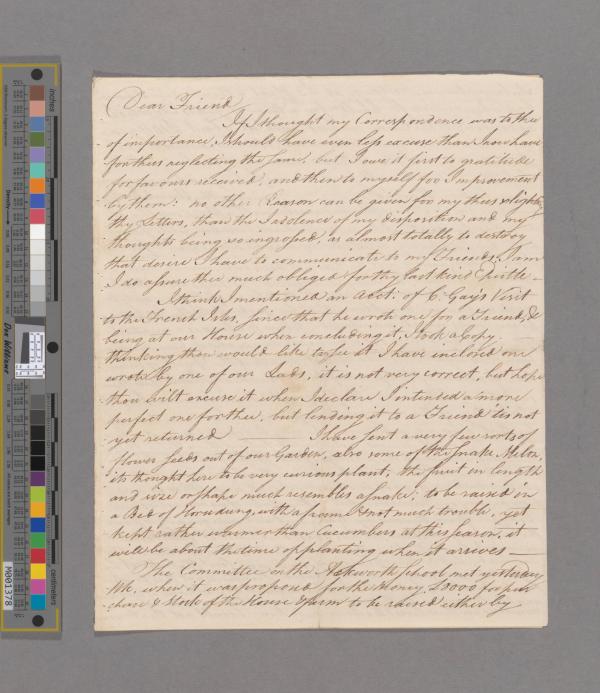 Dear Friend
If I thought my Correspondence was to thee
of importance, I should have even less excuse than I now have
for thus neglecting the same, but I owe it first to gratitude
for favours received, and then to myself for Improvement
by them: no other Reason can be given for my thus slighting
thy Letters, than the Indolence of my disposition and my
thoughts being so ingrossed, as almost totally to destroy
that desire I have to communicate to my Friends, I am
I do assure thee much obliged for thy last kind Epistle —
I think I mentioned an Acct: of C: Gay's Visit
to the French Isles, since that he wrote one for a Friend, &
being at our House when concluding it, I took a Copy
thinking thou would like to see it I have inclosed one
wrote by one of our Lads, it is not very correct, but hope
thou wilt excuse it when I declare I intended a more
perfect one for thee, but lending it to a Friend 'tis not
yet returned I have sent a very few sorts of
flower seeds out of our Garden, also some of the Snake Melon,
its thought here to be very curious plant, the fruit in length
and size or shape much resembles a Snake; to be raised in
a Bed of Horsedung, with a frame & not much trouble, yet
kept rather warmer than Cucumbers at this season, it
will be about the time of planting when it arrives —
The Committee on the Ackworth School met yesterday
Wk. when it was proposed for the Money, £8000 for pur
chase & Stock of the House & farm to be raised either by
inches
centimeters
Don Williams
M001378